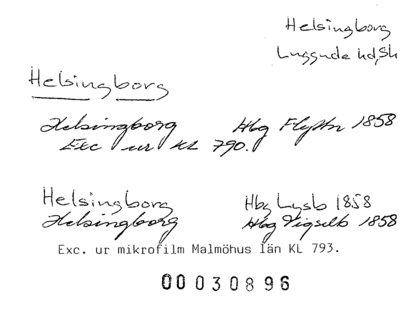 Helsingborg
Luggude hd, Sk
Helsingborg
Helsingborg Hbg Flyttn 1858
Exc ur KL 790.
Helsingborg Hbg Lysb 1858
Helsingborg Hbg Vigselb 1858
Exc. ur mikrofilm Malmöhus län KL 793.
00030896